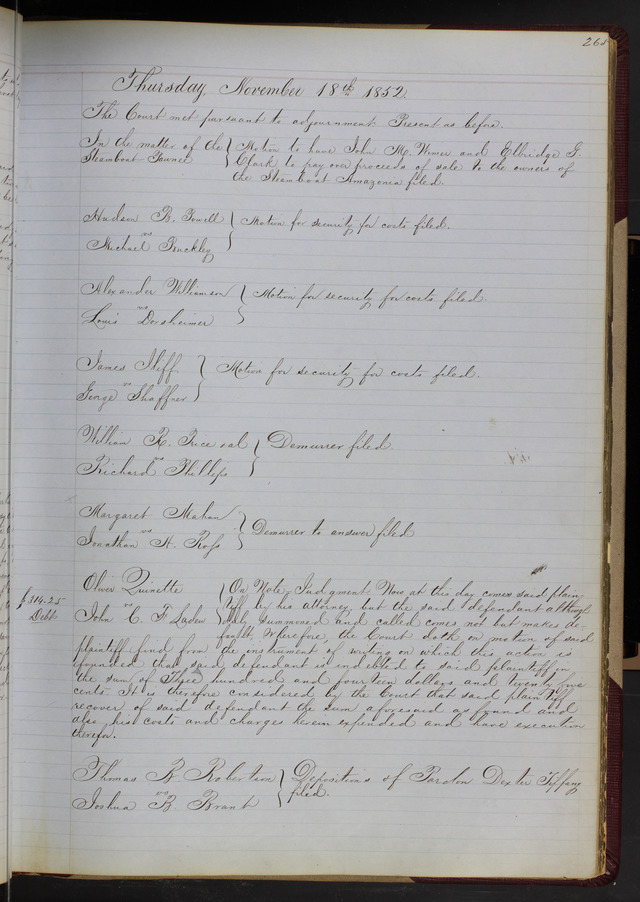 Thursday, November 18th 1852
The Court met pursuant to adjournment. Present as before.
In the matter of the } Motion to have John Mc. and Elbridge G.
Steamboat } Clark to pay over proceeds of sale to the owners of
the Steamboat Amazonea filed.
Hudson B. } Motion for security for costs filed.
vs
Michael
Alexander Williamson } Motion for security for costs filed.
vs
Louis Dorsheimer
James Iliff. } Motion for security for costs filed.
vs
George Shaffner
William R. Price et al } Demurrer filed.
vs
Richard Phillips
Margaret Mahan } Demurrer to answer filed
vs
Jonathan A. Ross
Oliver Quinette } On Note, Judgment. Now at this day comes said plain-
$314.25 tiff by his attorney, but the said defendant although
Debt vs
John C. F. Laden } duly summoned and called comes not but makes de-
fault; Wherefore, the Court doth on motion of said
plaintiff find from the instrument of writing on which this action is
founded that said defendant is indebted to said plaintiff in
the sum of Three hundred and fourteen dollars and twenty five
cents It is therefore considered by the Court that said plaintiff
recover of said defendant the sum aforesaid as found and
also his costs and charges herein expended and have execution
therefor.
Thomas R. Robertson } Depositions of Pardon Dexter Tiffany
vs filed.
Joshua B. Brant